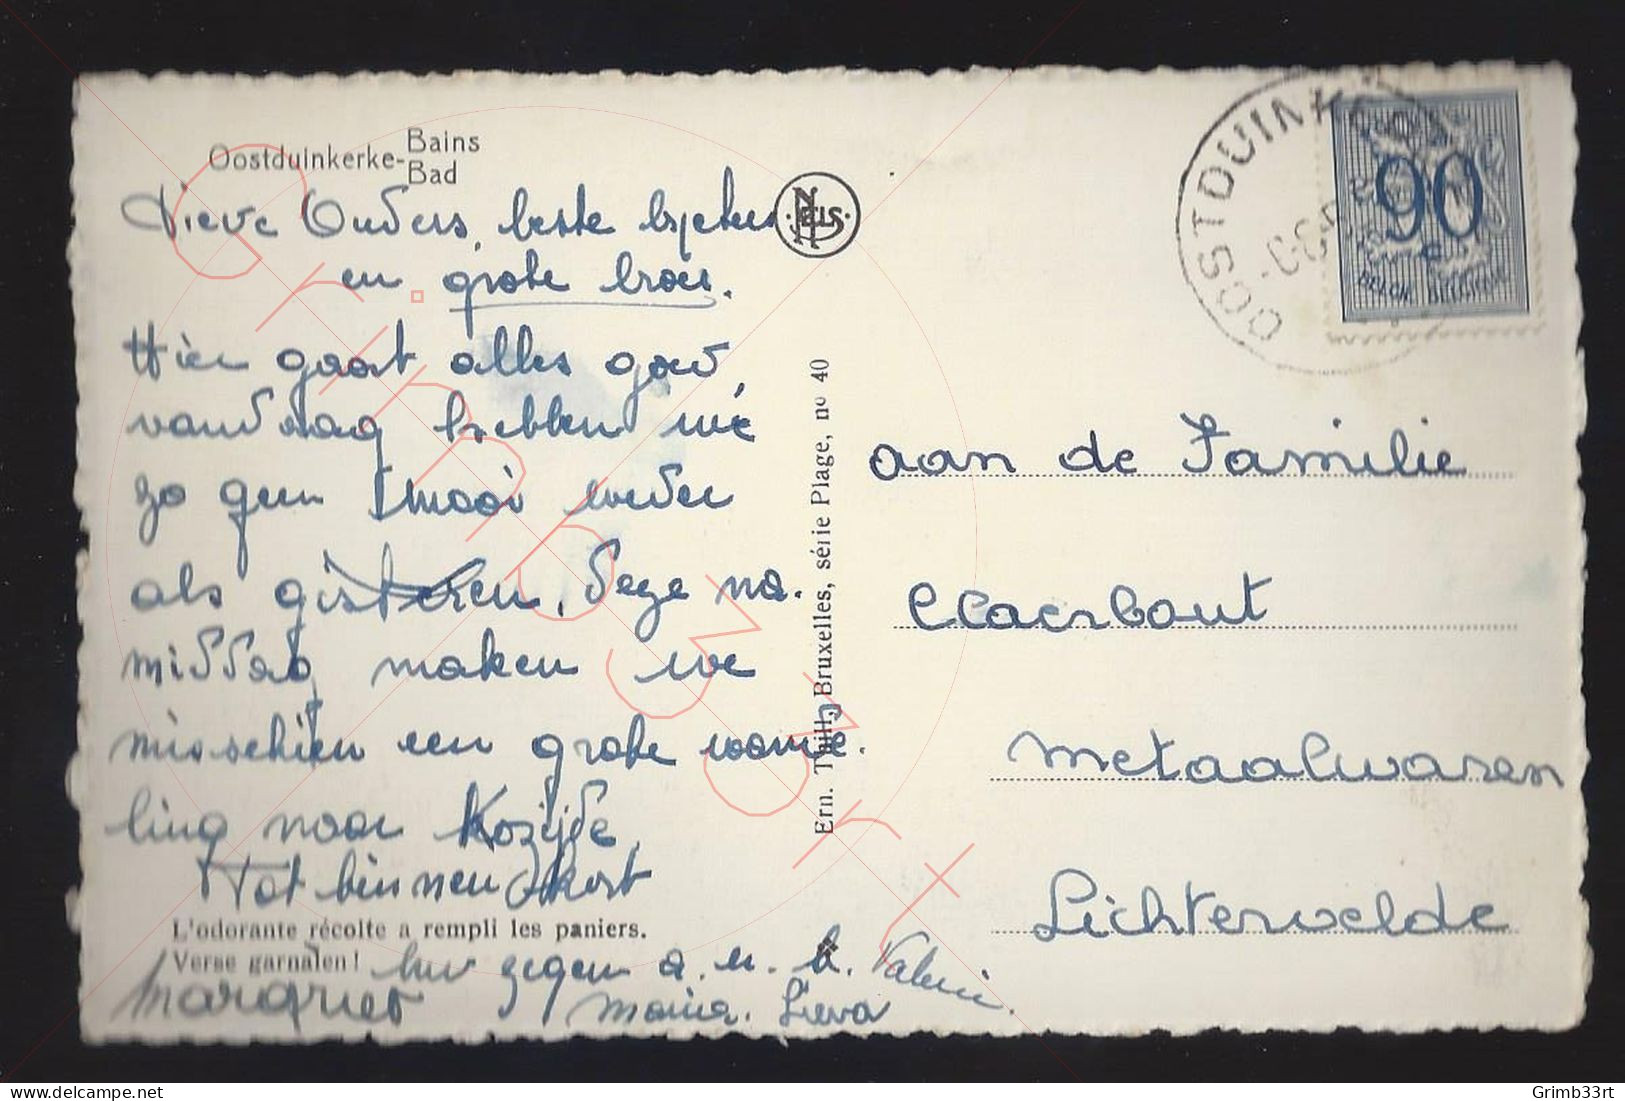 Oostduinkerke-Bains
Bad
Lieve Ouders, beste
en grote broer.
Hier gaat alles goed,
vandaag hebben we
zo geen mooi weder
als gisteren. Deze na-
middag maken we
misschien een grote wande-
ling naar Koxijde,
Tot binnen kort
L'odorante récolte a rempli les paniers.
Verse garnalen!
zegen a. u. k. Valeria.
Margriet Maria. Lieva
Ern. Thill, Bruxelles, série Plage, no 40
NELS
OOSTDUINKERKE
90
c
BELGIE BELGIQUE
aan de Familie
Claerbout
metaalwaren
Lichtervelde
Grimb33rt
delcampe.net
Grimb33rt